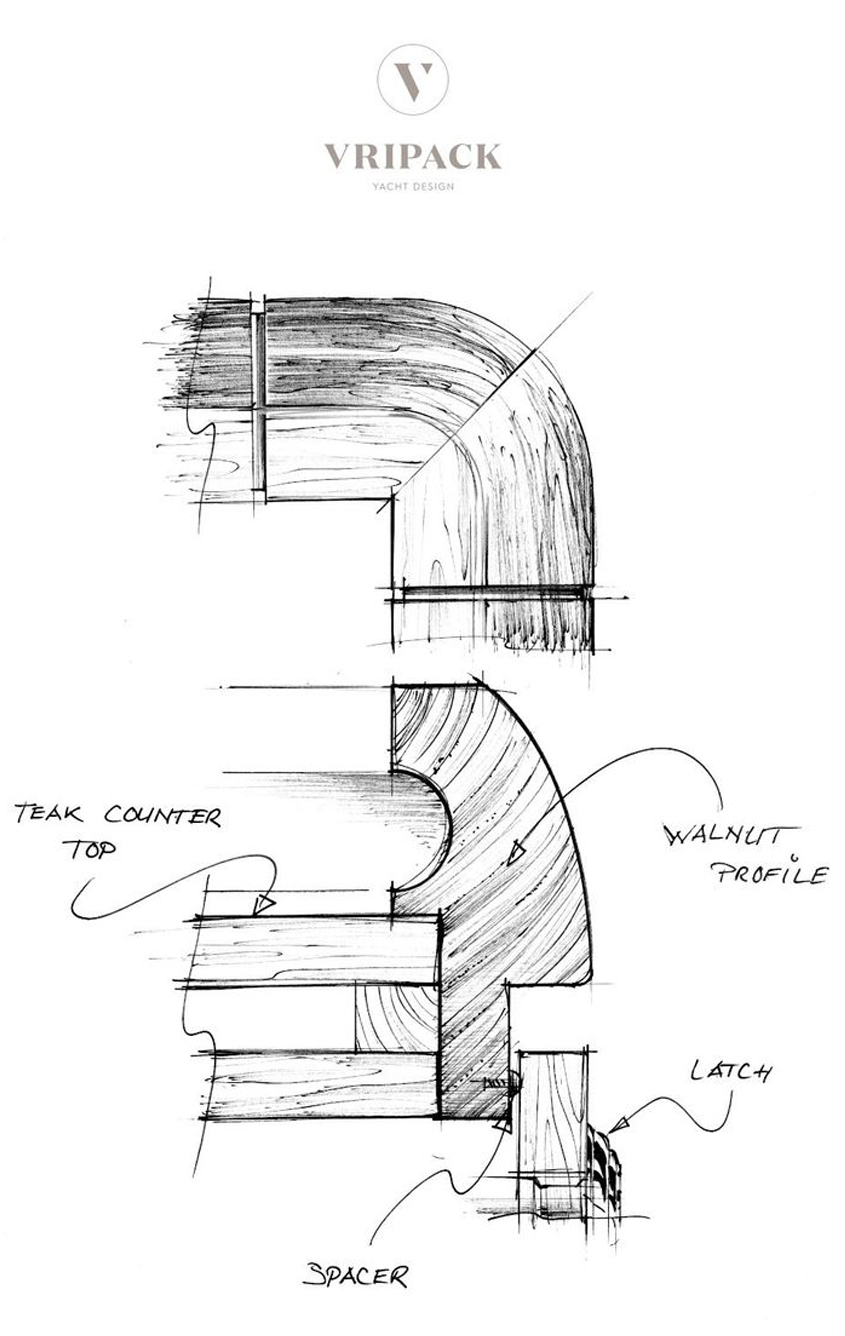 V
VRIPACK
YACHT DESIGN
TEAK COUNTER
TOP
WALNUT
PROFILE
LATCH
SPACER